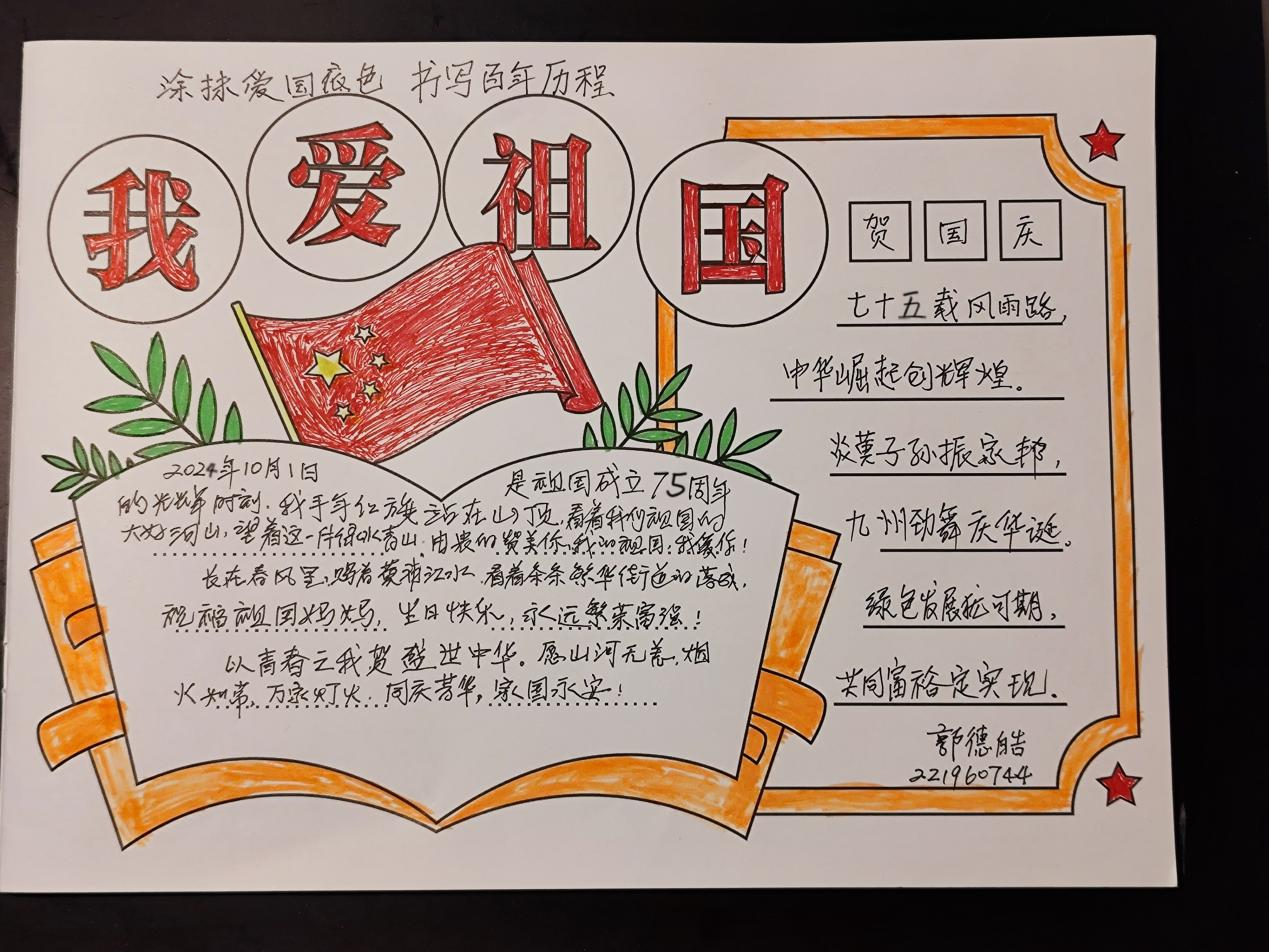 涂抹爱国底色 书写百年历程
我爱祖国
2024年10月1日 是祖国成立75周年
的光辉时刻,我手举红旗站在山顶,看着我们祖国的
大好河山,望着这一片绿水青山,由衷的赞美你,我的祖国:我爱你!
长在春风里,喝着黄浦江水,看着条条繁华街道的落成,
祝福祖国妈妈,生日快乐,永远繁荣富强!
以青春之我贺盛世中华。愿山河无恙,烟
火如常,万家灯火,同庆芳华,家国永安!
贺国庆
七十五载风雨路,
中华崛起创辉煌。
炎黄子孙振家邦,
九州劲舞庆华诞。
绿色发展犹可期,
共同富裕定实现。
郭德皓
221960744